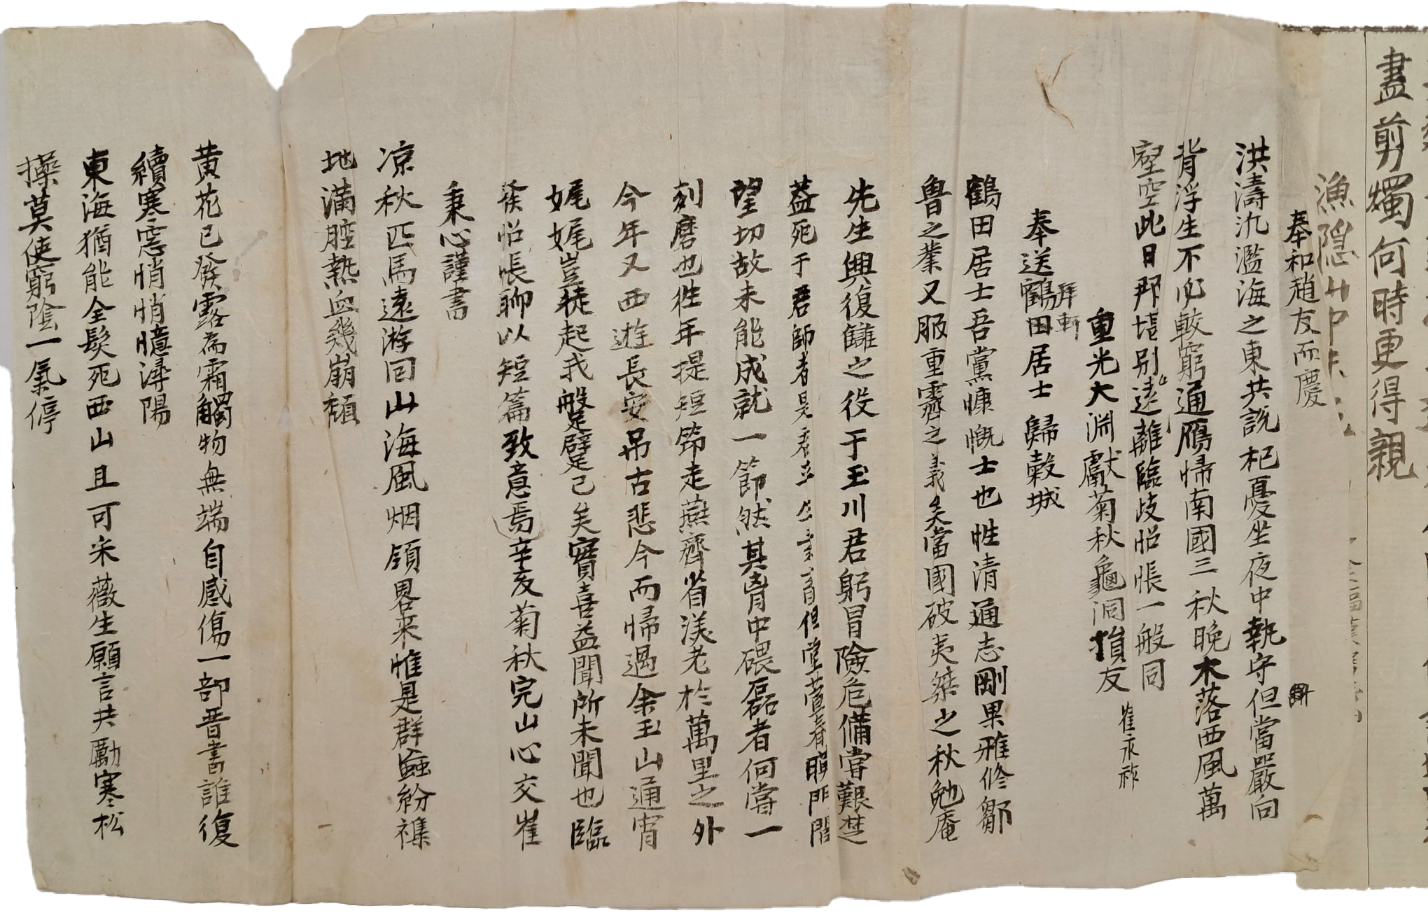 盡剪燭何時更得親
漁隱山中
奉和趙友而慶
洪濤氿濫海之東共說杞憂坐夜中執守但當嚴向
背浮生不必較窮通鴈歸南國三秋晚木落西風萬
壑空此日那堪別遠離臨歧怊悵一般同
重光大淵獻菊秋龜洞損友 崔永祚
奉送屏軒鶴田居士歸穀城
鶴田居士吾黨慷慨士也性清通志剛果雅修鄒
魯之業又服重霽之義矣當國破夷桀之秋勉庵
先生興復讎之役于玉川君躬冒險危備嘗艱楚
益死于君師者是君
望切故未能成就一節然其胷中磈磊者何嘗一
刻磨也往年提短笻走燕齊省渼老於萬里之外
今年又西遊長安吊古悲今而歸過余玉山通宵
娓娓豈徒起我盤躄已矣實喜益聞所未聞也臨
發怊悵聊以短篇致意焉辛亥菊秋完山心交崔
秉心謹書
凉秋匹馬遠游回山海風烟領畧來惟是群䖝紛襍
地滿腔熱血幾崩頹
黄花已發露爲霜觸物無端自感傷一部晋書誰復
續寒窓悄悄憶潯陽
東海猶能全髮死西山且可采薇生願言共勵寒松
操莫使窮陰一氣停